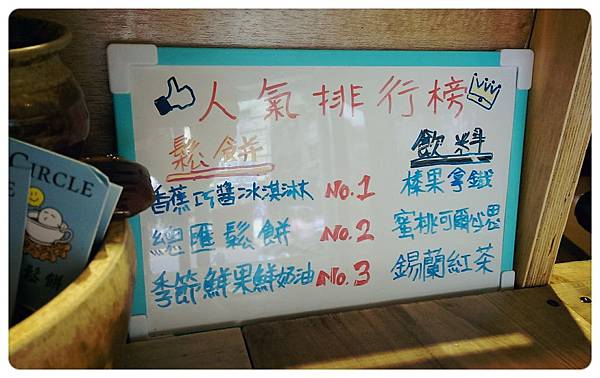 人氣排行榜
鬆餅 飲料
香蕉巧醬冰淇淋 No.1 榛果拿鐵
總匯鬆餅 No.2 蜜桃可爾必思
季節鮮果鮮奶油 No.3 錫蘭紅茶
CIRCLE
鬆餅